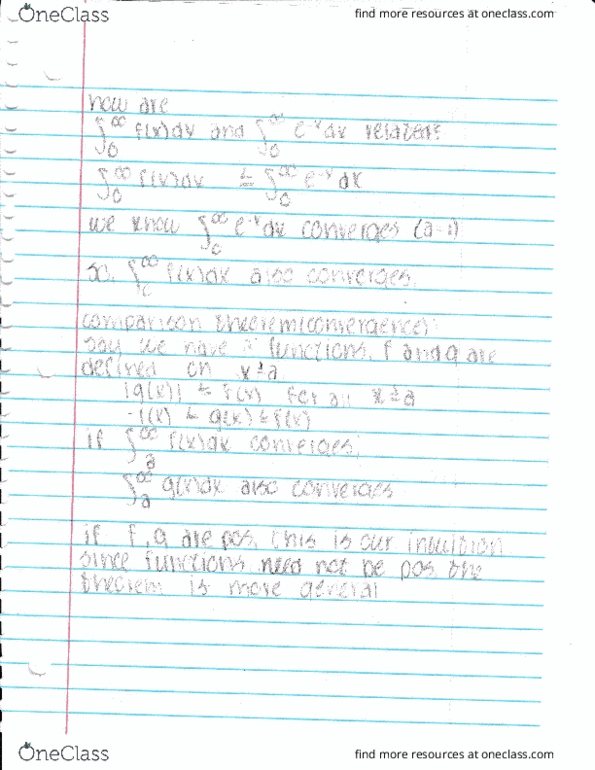 OneClass
find more resources at oneclass.com
how are
∫₀^∞ f(x)dx and ∫₀^∞ e⁻ˣdx related?
∫₀^∞ f(x)dx ≤ ∫₀^∞ e⁻ˣ dx
we know ∫₀^∞ e⁻ˣdx converges (a=1)
so, ∫₀^∞ f(x)dx also converges.
comparison theorem(convergence):
say we have 2 functions, f and g are
defined on x≥a
|g(x)| ≤ f(x) for all x≥a
-f(x) ≤ g(x) ≤ f(x)
if ∫ₐ^∞ f(x)dx converges,
∫ₐ^∞ g(x)dx also converges
if f, g are pos, this is our intuition
since functions need not be pos, the
theorem is more general
OneClass
find more resources at oneclass.com